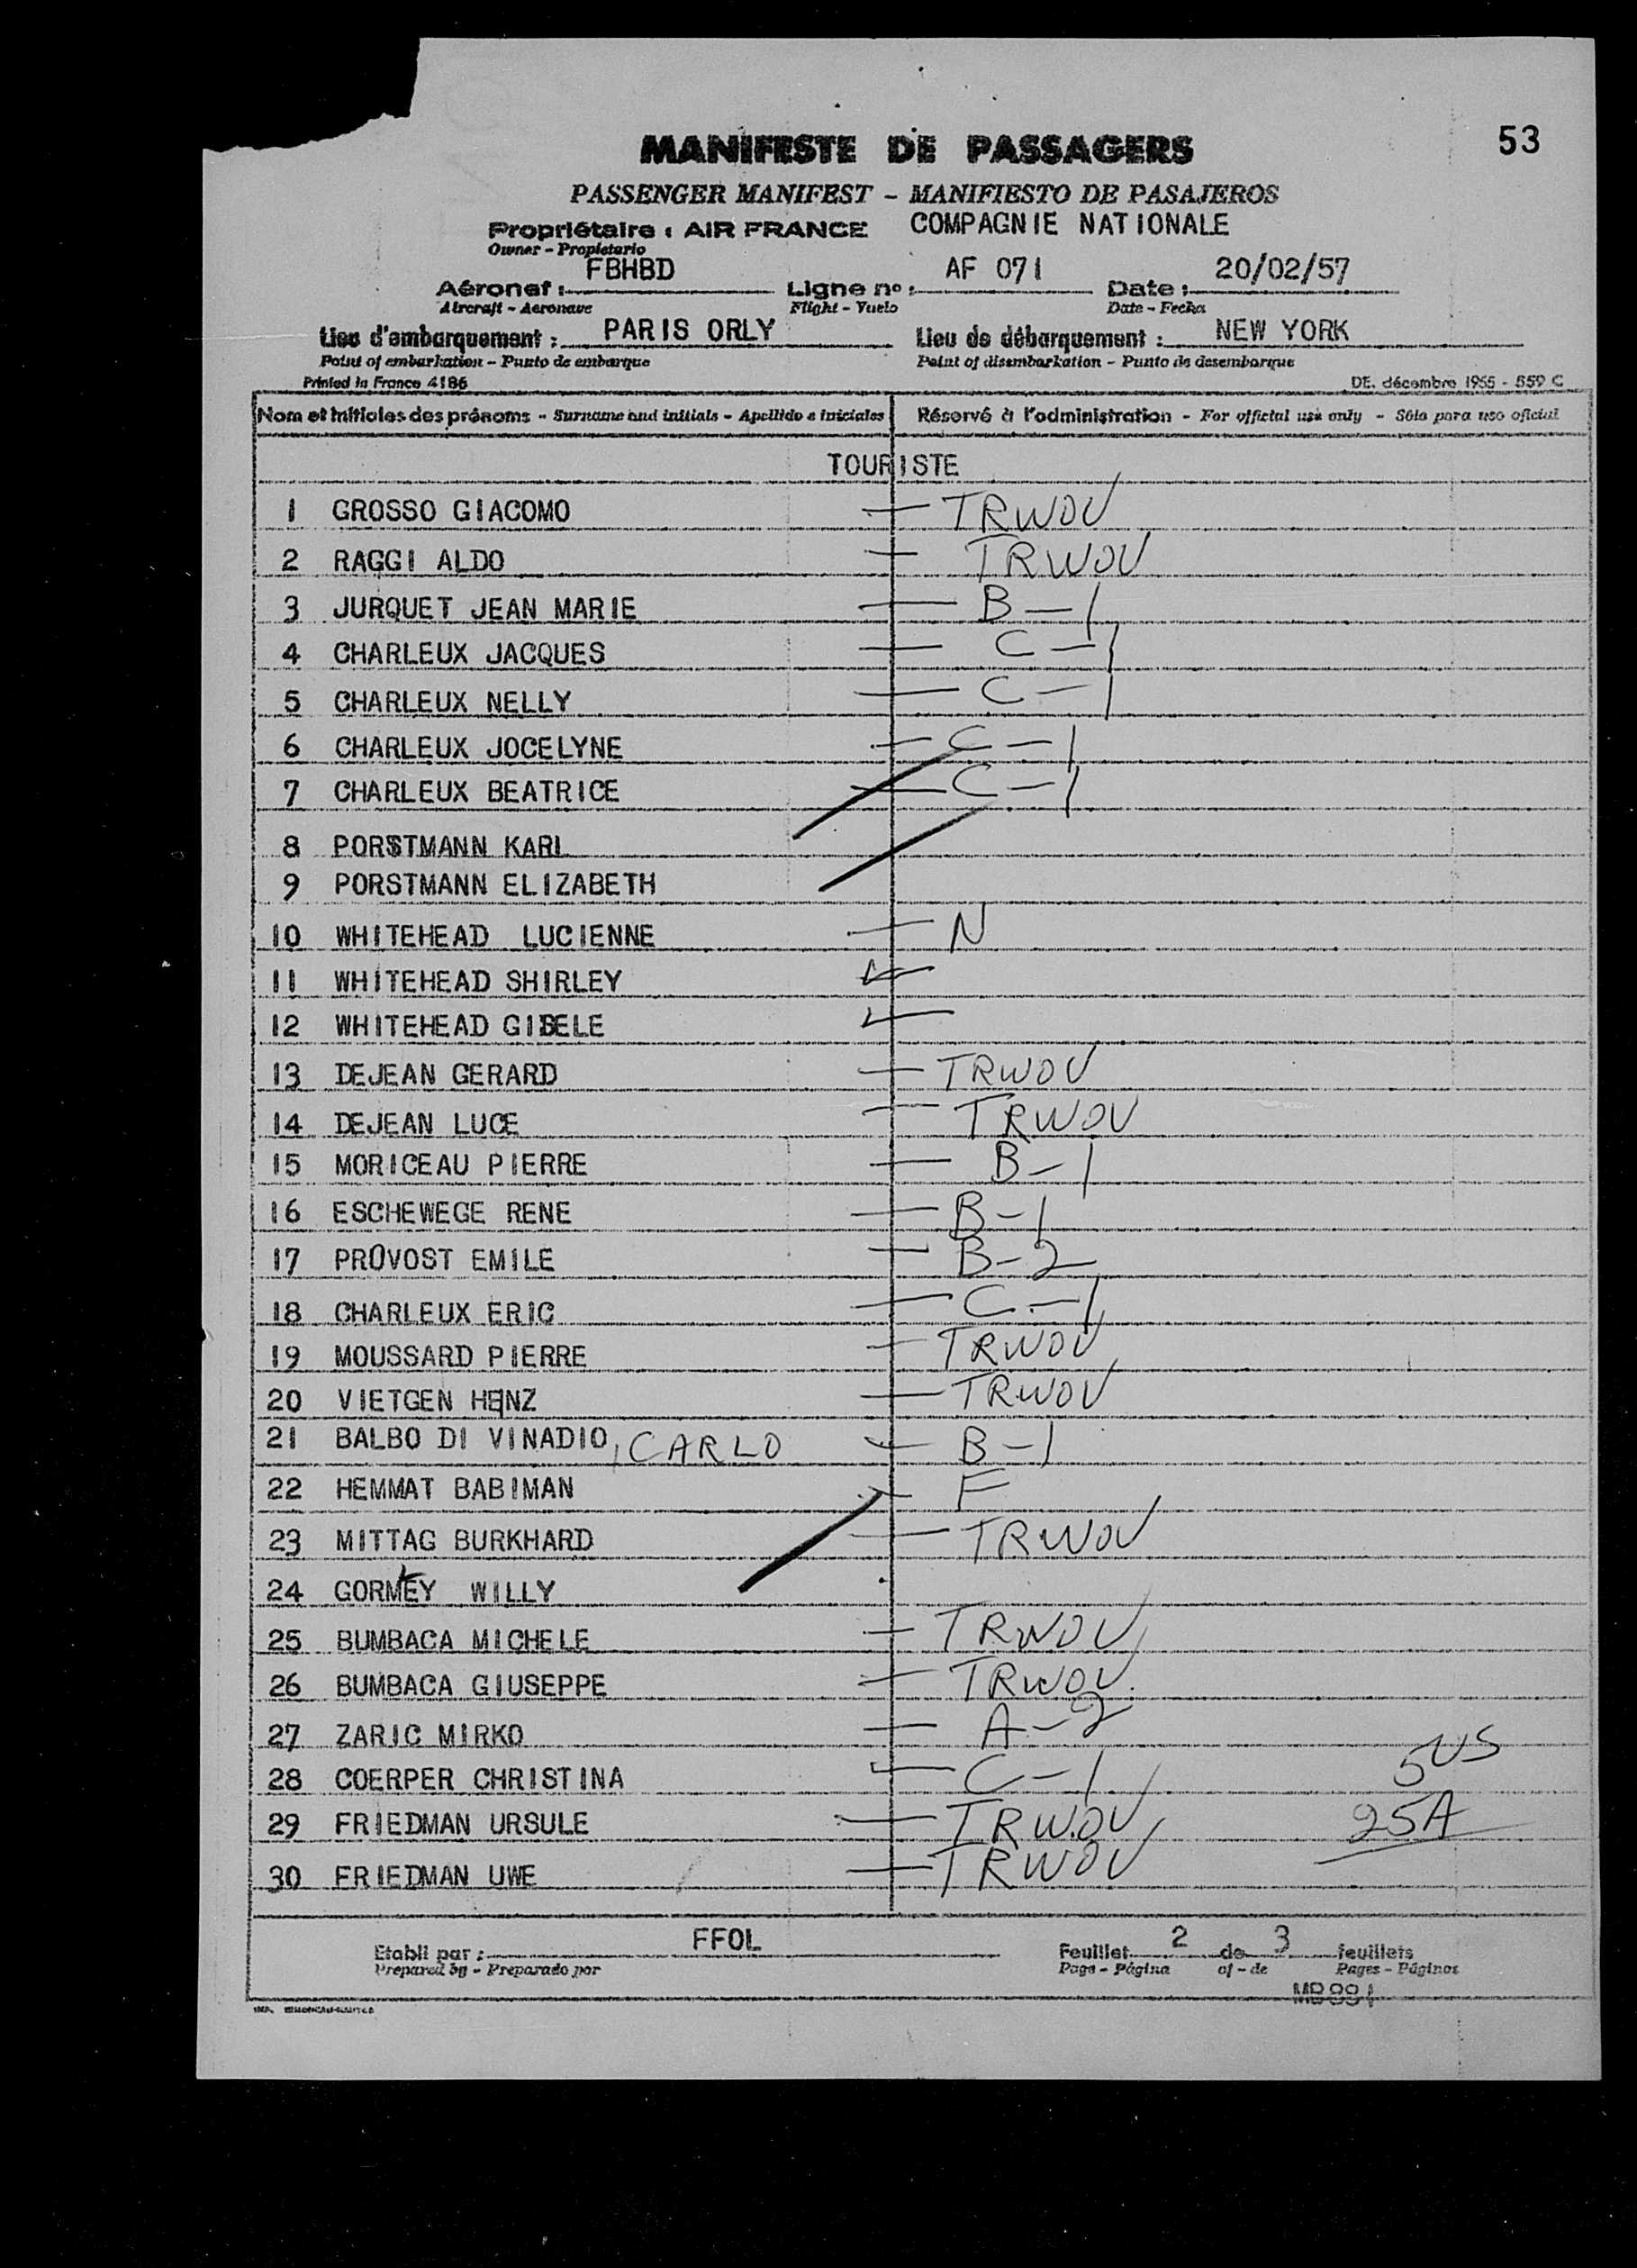 53
MANIFESTE DE PASSAGERS
PASSENGER MANIFEST - MANIFIESTO DE PASAJEROS
Propriétaire : AIR FRANCE COMPAGNIE NATIONALE
Owner - Propietario
Aéronef : FBHBD Ligne no : AF 071 Date : 20/02/57
Aircraft - Aeronave Flight - Vuelo Date - Fecha
Lieu d'embarquement : PARIS ORLY Lieu de débarquement : NEW YORK
Point of embarkation - Punto de embarque Point of disembarkation - Punto de desembarque
Printed in France 4186 DE. décembre 1955 - 559 C
Nom et Initiales des prénoms - Surname and initials - Apellido e iniciales Réservé à l'administration - For official use only - Sólo para uso oficial
TOURISTE
1 GROSSO GIACOMO — TRWOV
2 RAGGI ALDO — TRWOV
3 JURQUET JEAN MARIE — B-1
4 CHARLEUX JACQUES — C-1
5 CHARLEUX NELLY — C-1
6 CHARLEUX JOCELYNE — C-1
7 CHARLEUX BEATRICE — C-1
8 PORSTMANN KARL
9 PORSTMANN ELIZABETH
10 WHITEHEAD LUCIENNE — N
11 WHITEHEAD SHIRLEY
12 WHITEHEAD GISELE
13 DEJEAN GERARD — TRWOV
14 DEJEAN LUCE — TRWOV
15 MORICEAU PIERRE — B-1
16 ESCHEWEGE RENE — B-1
17 PROVOST EMILE — B-2
18 CHARLEUX ERIC — C-1
19 MOUSSARD PIERRE — TRWOV
20 VIETGEN HEINZ — TRWOV
21 BALBO DI VINADIO, CARLO — B-1
22 HEMMAT BABIMAN — F
23 MITTAG BURKHARD — TRWOV
24 GORMEY WILLY
25 BUMBACA MICHELE — TRWOV
26 BUMBACA GIUSEPPE — TRWOV
27 ZARIC MIRKO — A-2
28 COERPER CHRISTINA — C-1 5US
29 FRIEDMAN URSULE — TRWOV 25A
30 FRIEDMAN UWE — TRWOV
Etabli par : FFOL Feuillet 2 de 3 feuillets
Prepared by - Preparado por Page - Página of - de Pages - Páginas